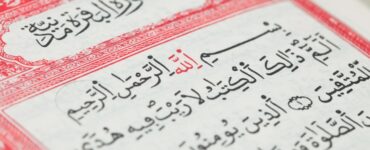 سُورَةُ الْبَقَرَةِ مَدَنِيَّةٌ
بِسْمِ اللّٰهِ الرَّحْمٰنِ الرَّحِيْمِ
الٓمّٓ ذٰلِكَ الْكِتٰبُ لَا رَيْبَ فِيْهِ هُدًى
لِّلْمُتَّقِيْنَ الَّذِيْنَ يُؤْمِنُوْنَ
الصَّلٰوةَ